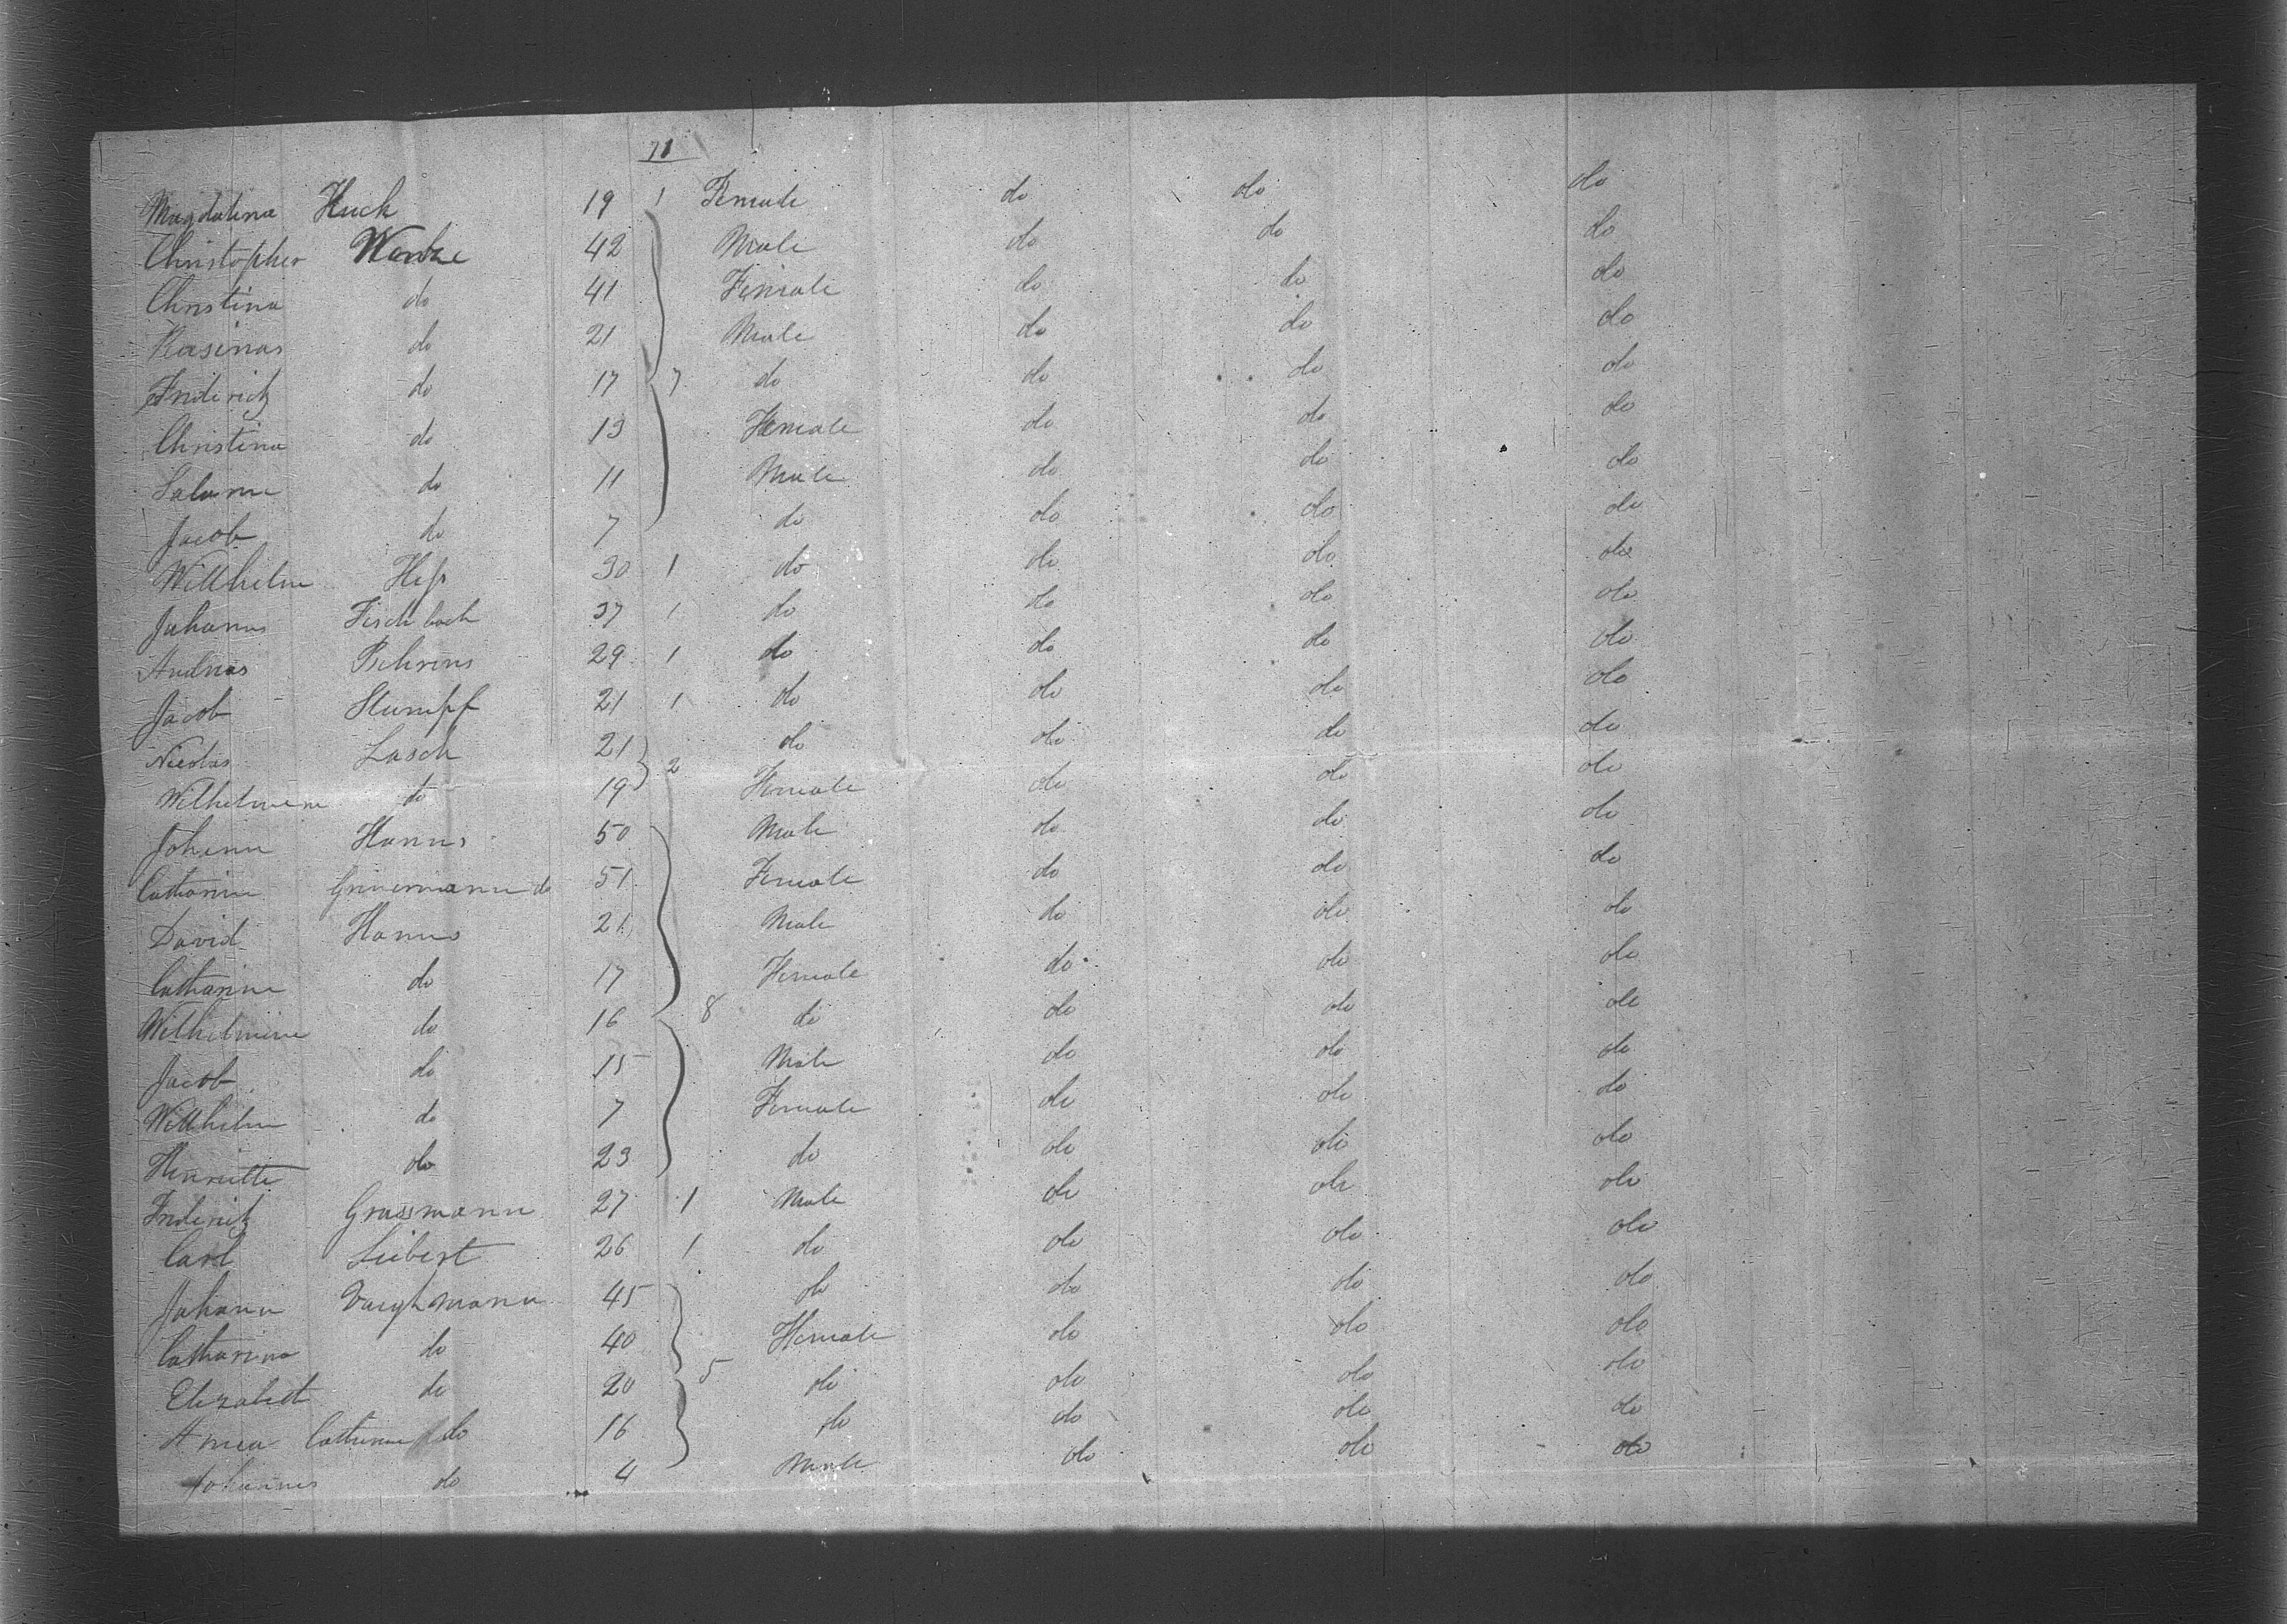 71
Magdalina Huck 19 1 Female do do do
Christopher 42 Male do do do
Christina do 41 Female do do do
do 21 Male do do do
Friderich do 17 7 do do do do
Christina do 13 Female do do do
Salome do 11 Male do do do
Jacob do 7 do do do do
Willhelm Heß 30 1 do do do do
Johanes Fischbach 37 1 do do do do
Andreas Behrens 29 1 do do do do
Jacob Stumpf 21 1 do do do do
Nicolas Lasch 21 2 do do do do
Wilhelmine do 19 Female do do do
Johann Hannes 50 Male do do do
Catharine do 51 Female do do do
David Hannes 21 Male do do do
Catharine do 17 Female do do do
Wilhelmine do 16 8 do do do do
Jacob do 15 Male do do do
Willhelm do 7 Female do do do
Henriette do 23 do do do do
Friderich Grassmann 27 1 Male do do do
Carl Liebert 26 1 do do do do
Johann 45 do do do do
Catharina do 40 Female do do do
Elizabeth do 20 5 do do do do
Anna Catharine do 16 do do do do
Johannes do 4 Male do do do